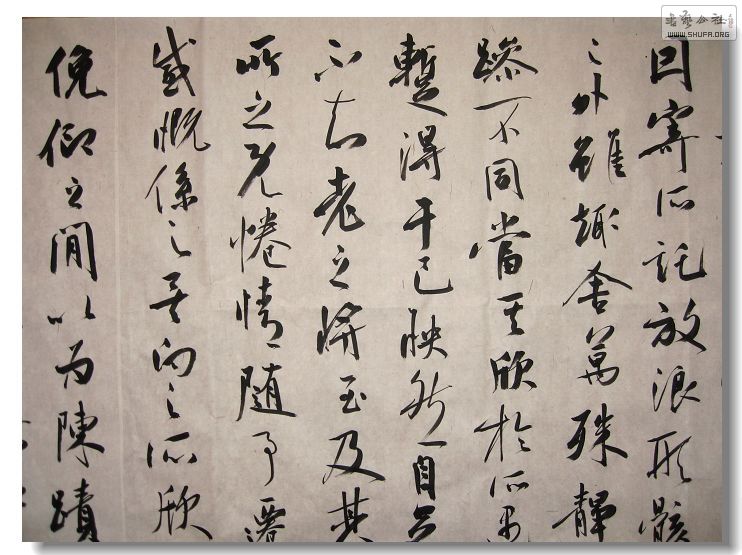 因寄所託放浪形骸
之外雖趣舍萬殊靜
躁不同當其欣於所遇
蹔得于己怏然自足
不知老之將至及其
所之既惓情隨事遷
感慨係之矣向之所欣
俛仰之間以為陳蹟
书艺公社
WWW.SHUFA.ORG